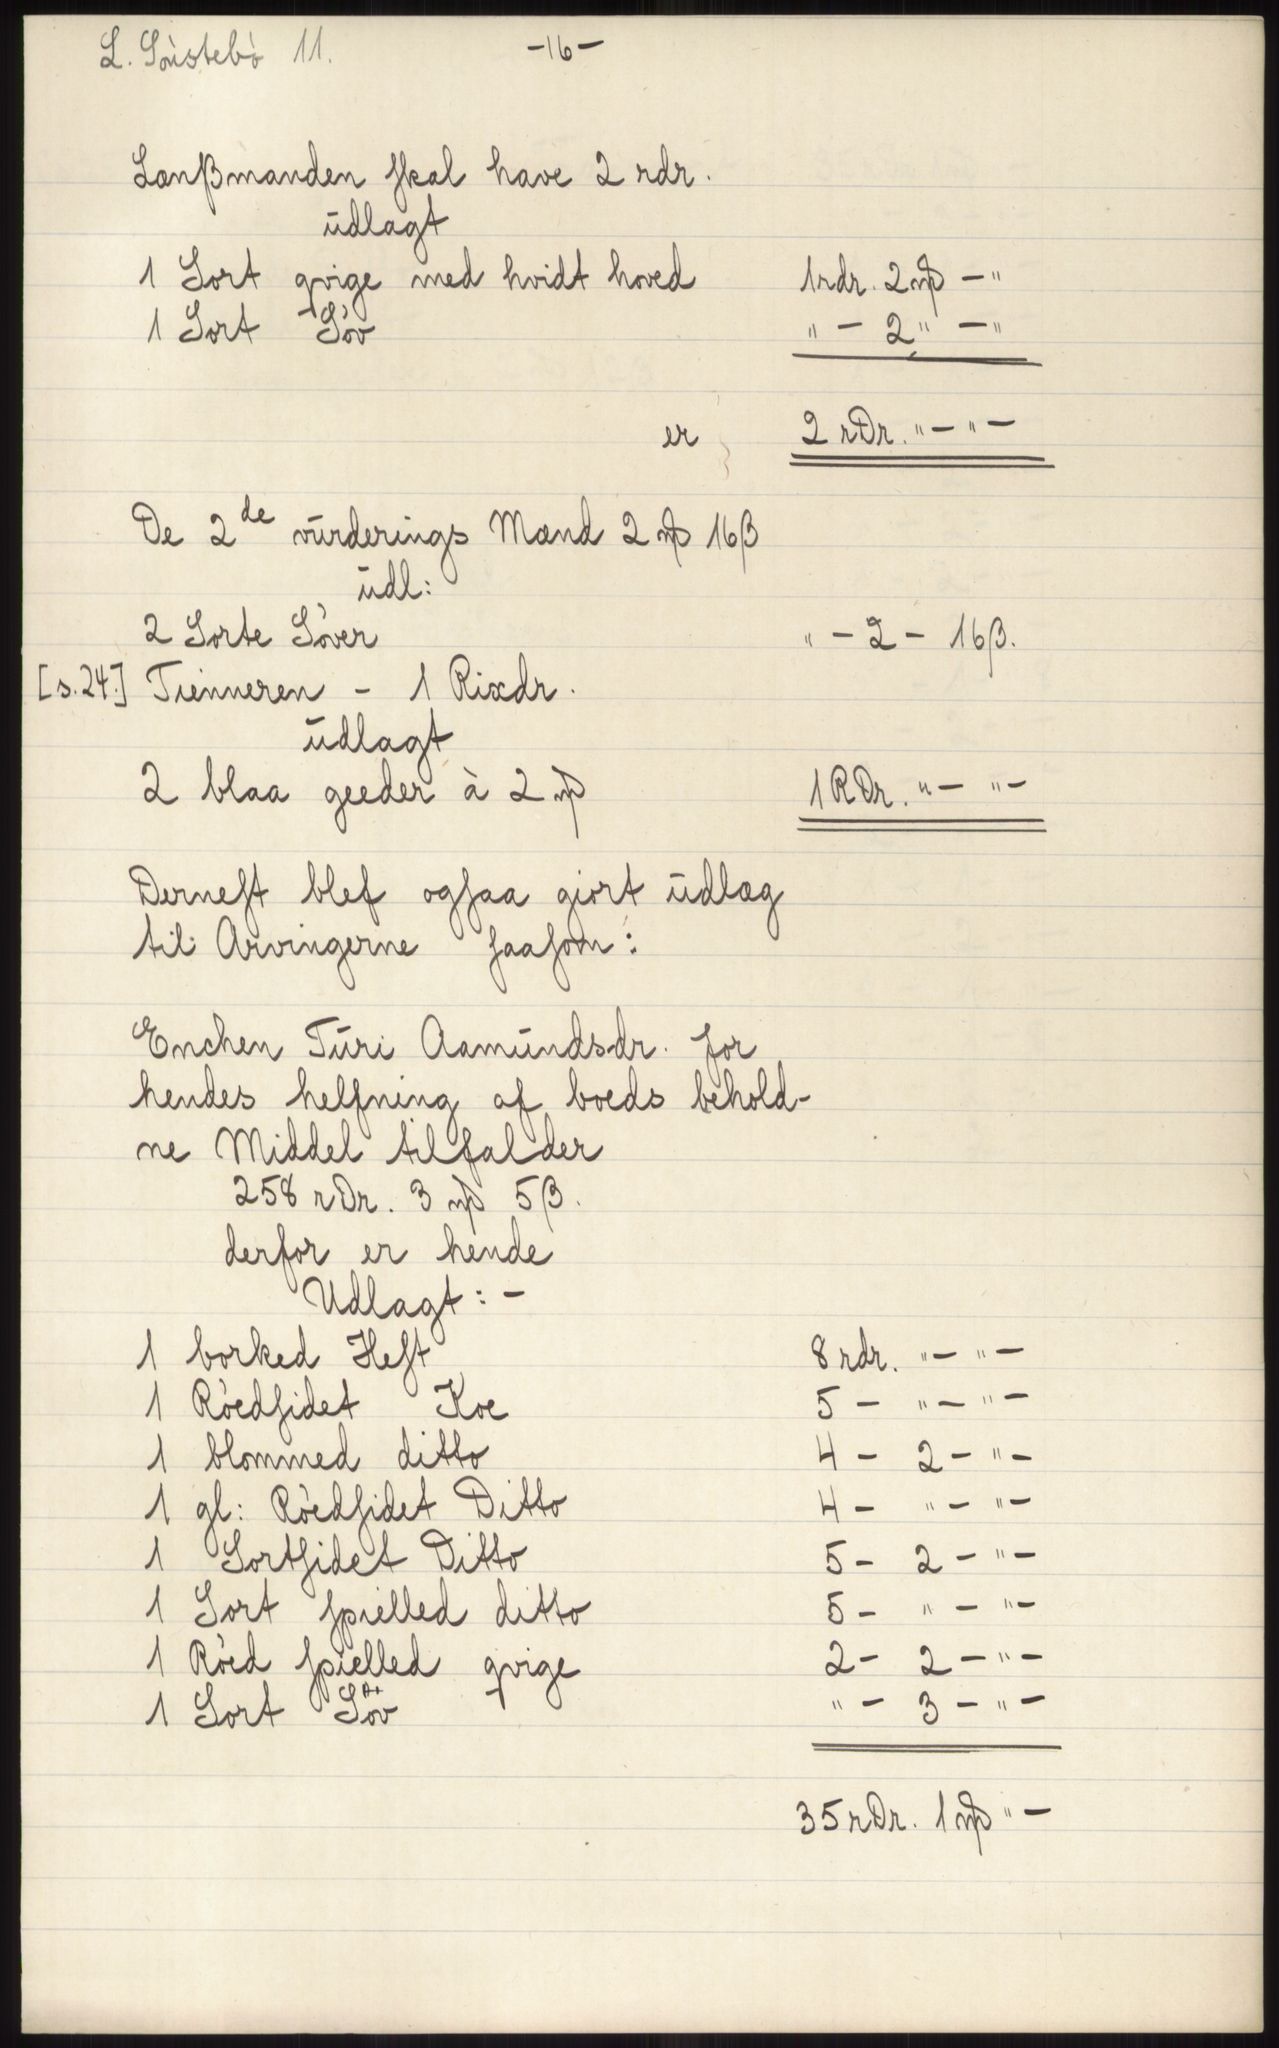 L. Söistebö 11. -16-
Lænßmanden skal have 2 rdr.
ūdlagt
1 Sort qvige med hvidt hoved 1 rdr. 2 mþ - "
1 Sort Söv " - 2 " - "
er 2 rDr. " - " -
De 2de vūrderings Mænd 2 mþ 16 β
ūdl:
2 Sorte Söver " - 2 - 16 β.
[s.24.] Tienneren - 1 Rixdr.
ūdlagt
2 blaa geeder à 2 mþ 1 RDr. " - " -
Dernest blef ogsaa giort ūdlæg
til Arvingerne saasom:
Enchen Tūri Aamūndsdr. for
hendes helfning af boeds behold-
ne Middel tilfalder
258 rDr. 3 mþ 5 β.
derfor er hende
Udlagt: -
1 borked Hest 8 rdr. " - " -
1 Röedsidet Koe 5 - " - " -
1 blommed ditto 4 - 2 - " -
1 gl: Röedsidet Ditto 4 - " - " -
1 Sortsidet Ditto 5 - 2 - " -
1 Sort spielled ditto 5 - " - " -
1 Röed spielled qvige 2 - 2 - " -
1 Sort Söv " - 3 - " -
35 rDr. 1 mþ " -